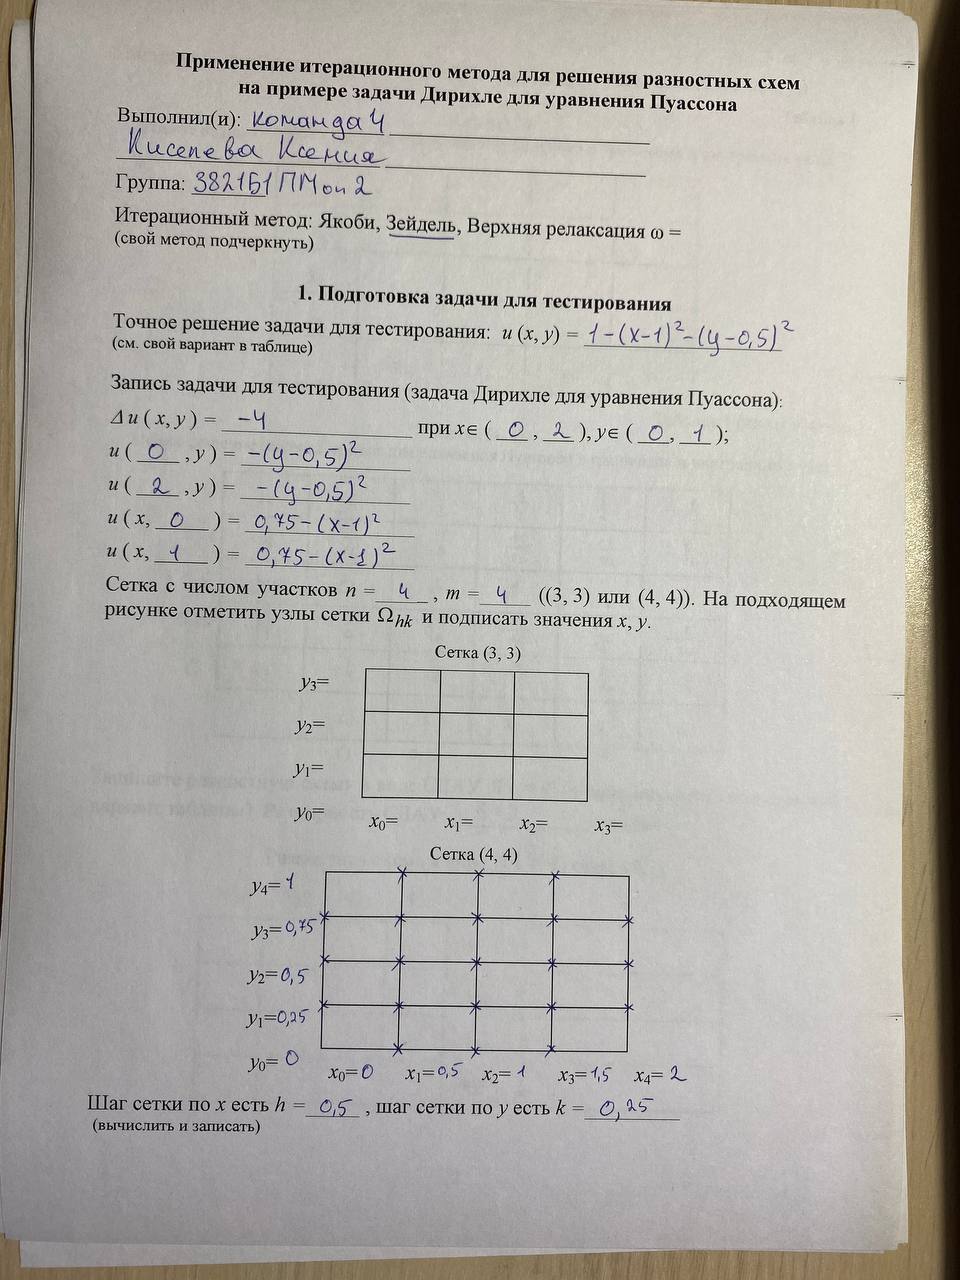 Применение итерационного метода для решения разностных схем
на примере задачи Дирихле для уравнения Пуассона
Выполнил(и): команда 4
Киселева Ксения
Группа: 3821Б1ПМоп2
Итерационный метод: Якоби, Зейдель, Верхняя релаксация ω =
(свой метод подчеркнуть)
1. Подготовка задачи для тестирования
Точное решение задачи для тестирования: u (x, y) = 1-(x-1)²-(y-0,5)²
(см. свой вариант в таблице)
Запись задачи для тестирования (задача Дирихле для уравнения Пуассона):
Δu ( x, y ) = -4 при x∈ ( 0 , 2 ), y∈ ( 0 , 1 );
u ( 0 , y ) = -(y-0,5)²
u ( 2 , y ) = -(y-0,5)²
u ( x, 0 ) = 0,75-(x-1)²
u ( x, 1 ) = 0,75-(x-1)²
Сетка с числом участков n = 4 , m = 4 ((3, 3) или (4, 4)). На подходящем
рисунке отметить узлы сетки Ωhk и подписать значения x, y.
Сетка (3, 3)
y3=
y2=
y1=
y0=
x0= x1= x2= x3=
Сетка (4, 4)
y4= 1
y3= 0,75
y2= 0,5
y1= 0,25
y0= 0
x0= 0 x1= 0,5 x2= 1 x3= 1,5 x4= 2
Шаг сетки по x есть h = 0,5 , шаг сетки по y есть k = 0,25
(вычислить и записать)